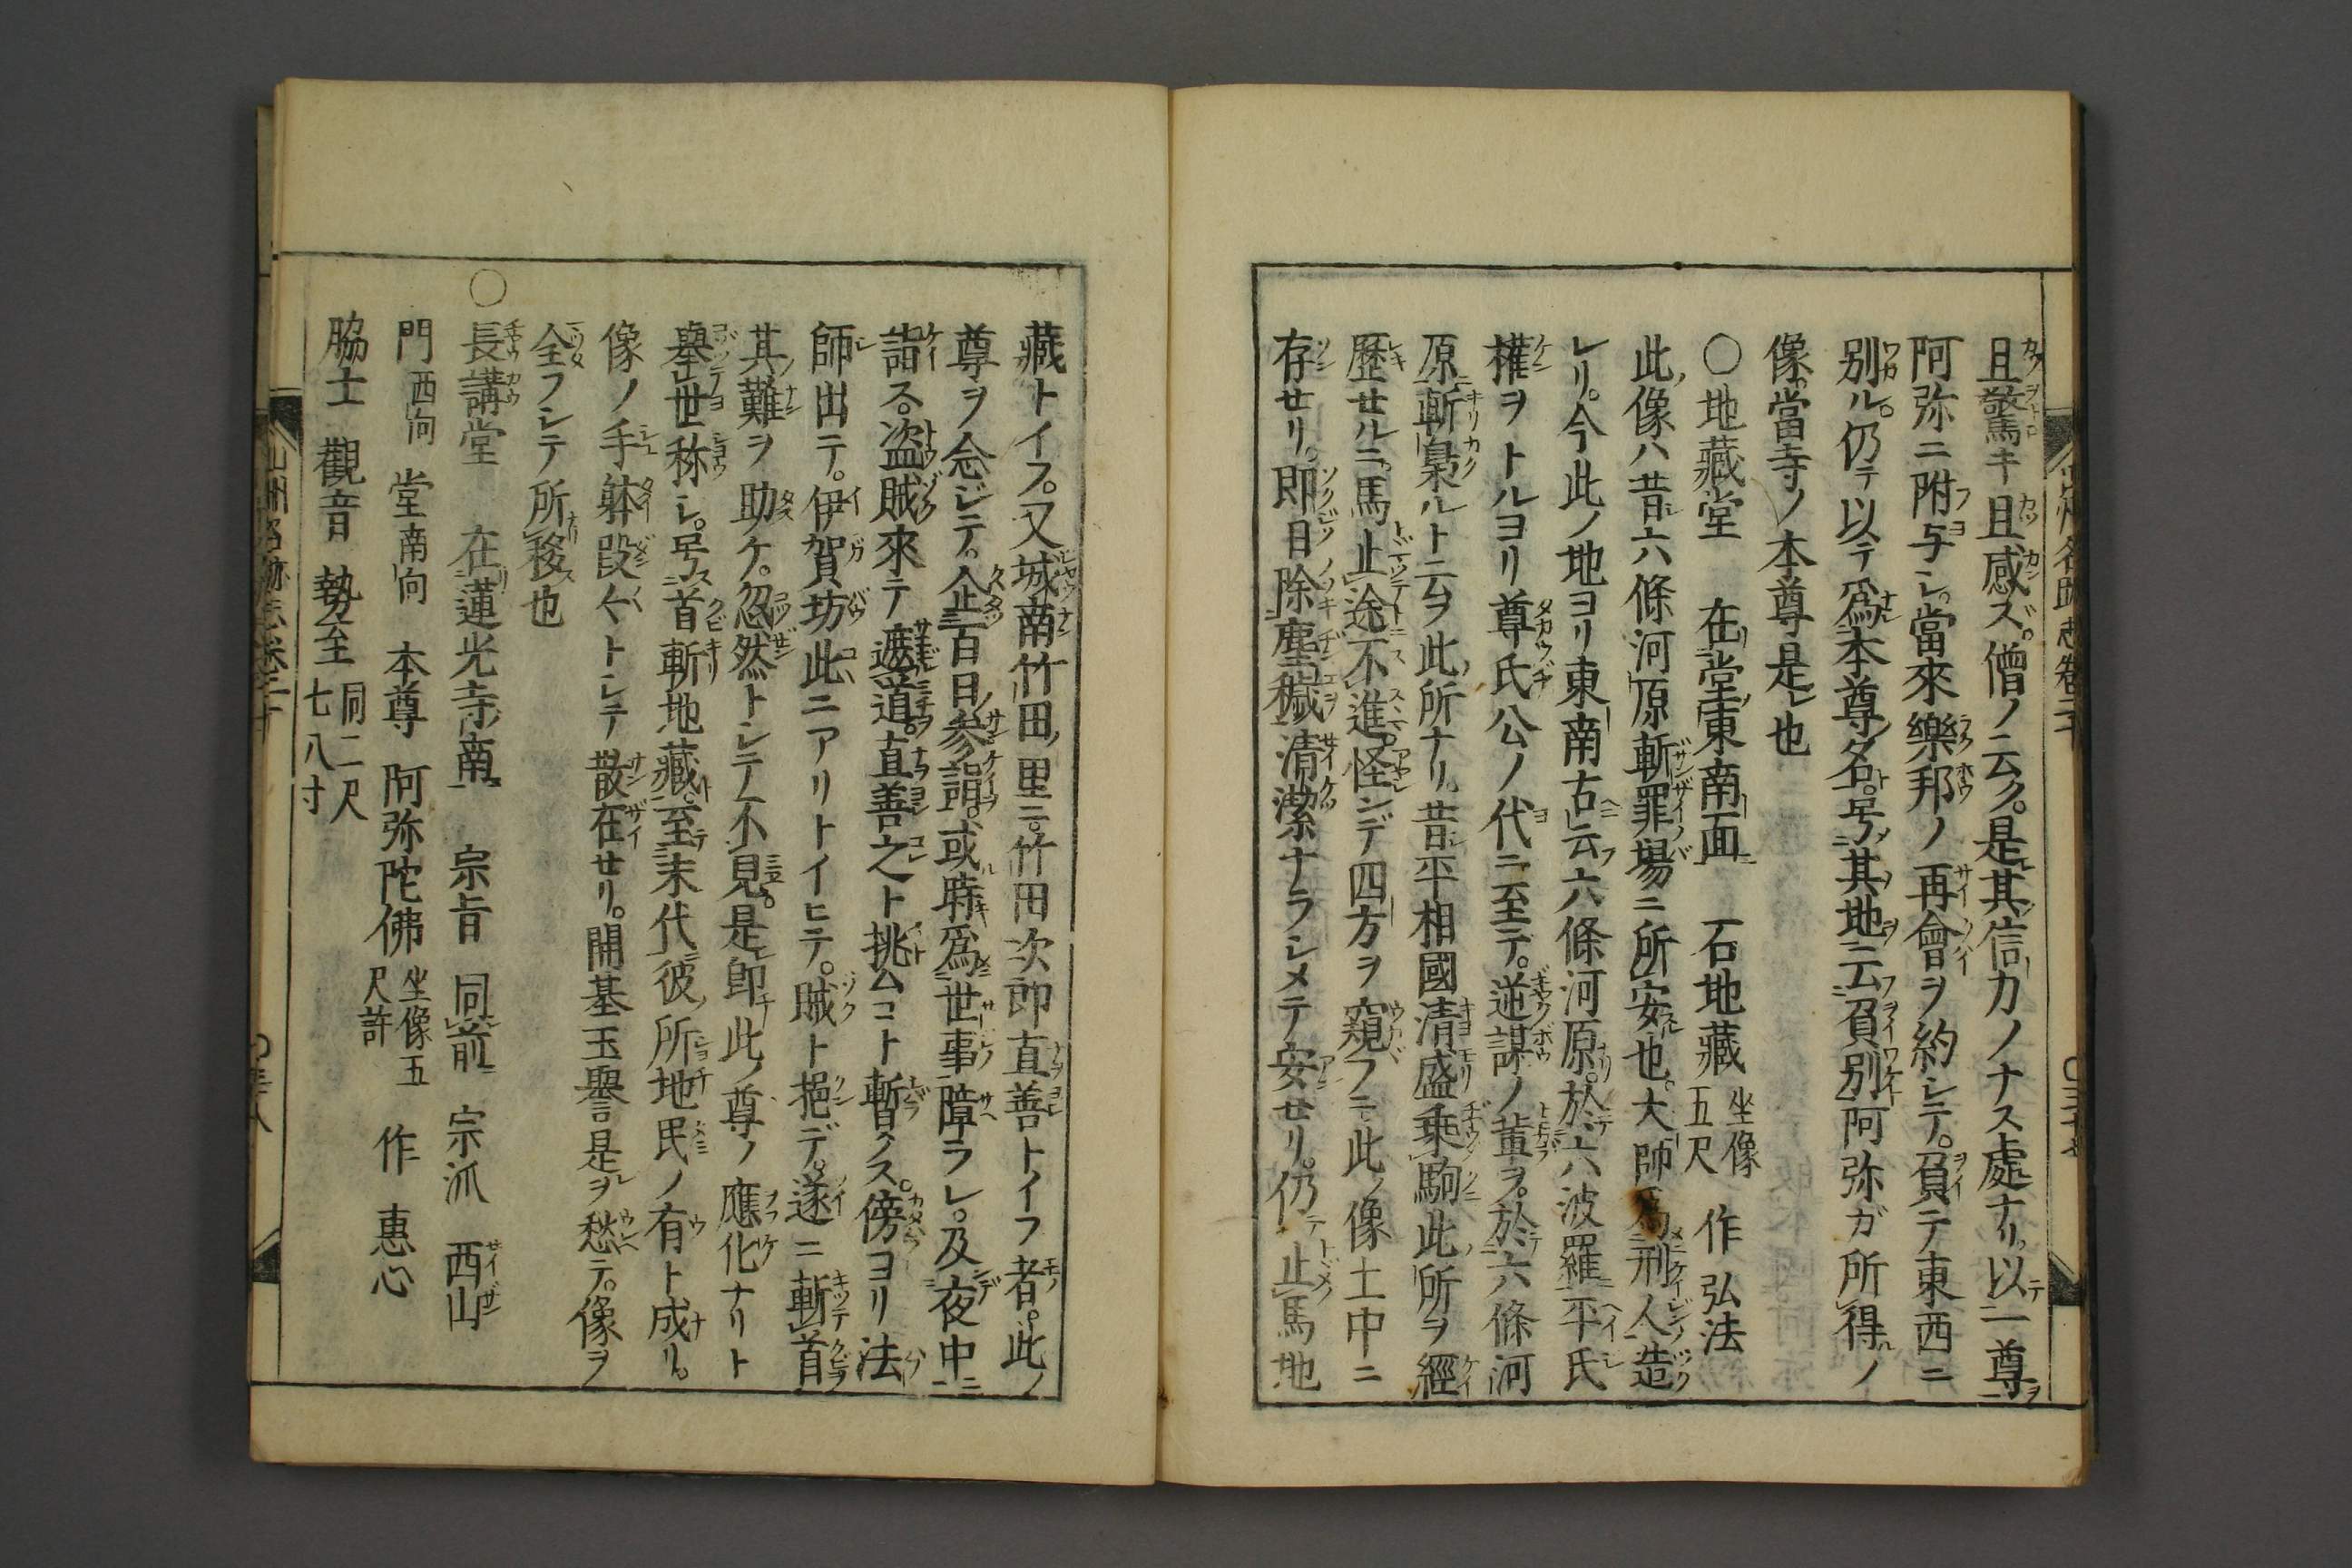 且驚キ且感ズ。僧ノ云ク。是其信力ノナス處ナリ。以一尊ヲ
阿弥ニ附与シ。當來樂邦ノ再會ヲ約シテ。負テ東西ニ
別ル。仍テ以テ爲本尊名。号其地云負別阿弥ガ所得ノ
像。當寺ノ本尊是レ也
〇地藏堂 在堂東南面 石地藏 坐像五尺 作 弘法
此像ハ昔六條河原斬罪場ニ所安也。大師爲刑人造
レリ。今此ノ地ヨリ東南古云六條河原。於六波羅平氏
權ヲトルヨリ尊氏公ノ代ニ至テ。逆謀ノ輩ヲ。於六條河
原斬梟ルト云ヲ此所ナリ。昔平相國清盛乗駒此所ヲ經
歷セルニ。馬止途不進。怪ンデ四方ヲ窺フニ此像土中ニ
存セリ。即日除塵穢清潔ナラシメテ安セリ。仍止馬地
藏トイフ。又城南竹田里ニ。竹田次郎直善トイフ者。此ノ
尊ヲ念ジテ。企百日参詣。或時爲世事障ラレ。及夜中ニ
詣ス。盗賊來テ遮道。直善之ト挑ムコト暫クス。傍ヨリ法
師出テ。伊賀坊此ニアリトイヒテ。賊ト挹デ。遂ニ斬首
其難ヲ助ケ。忽然トシテ不見。是即此ノ尊ノ應化ナリト
擧世称シ。号首斬地藏。至末代彼所地民ノ有ト成リ。
像ノ手躰段々トシテ散在セリ。開基玉譽是ヲ愁テ。像ヲ
全フシテ所移也
〇長講堂 在蓮光寺南 宗旨 同前 宗派 西山
門 西向 堂 南向 本尊 阿弥陀佛 坐像五尺許 作 惠心
脇士 觀音 勢至 同二尺七八寸